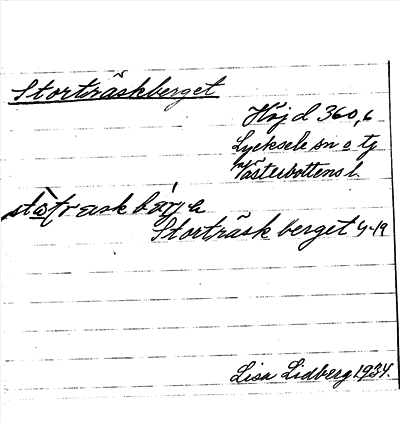 Stortråskberget
Höjd 360,6
Lycksele sn o tg
Västerbottens l.
Stortråsk berget 4-19
Lisa Lidberg 1934.